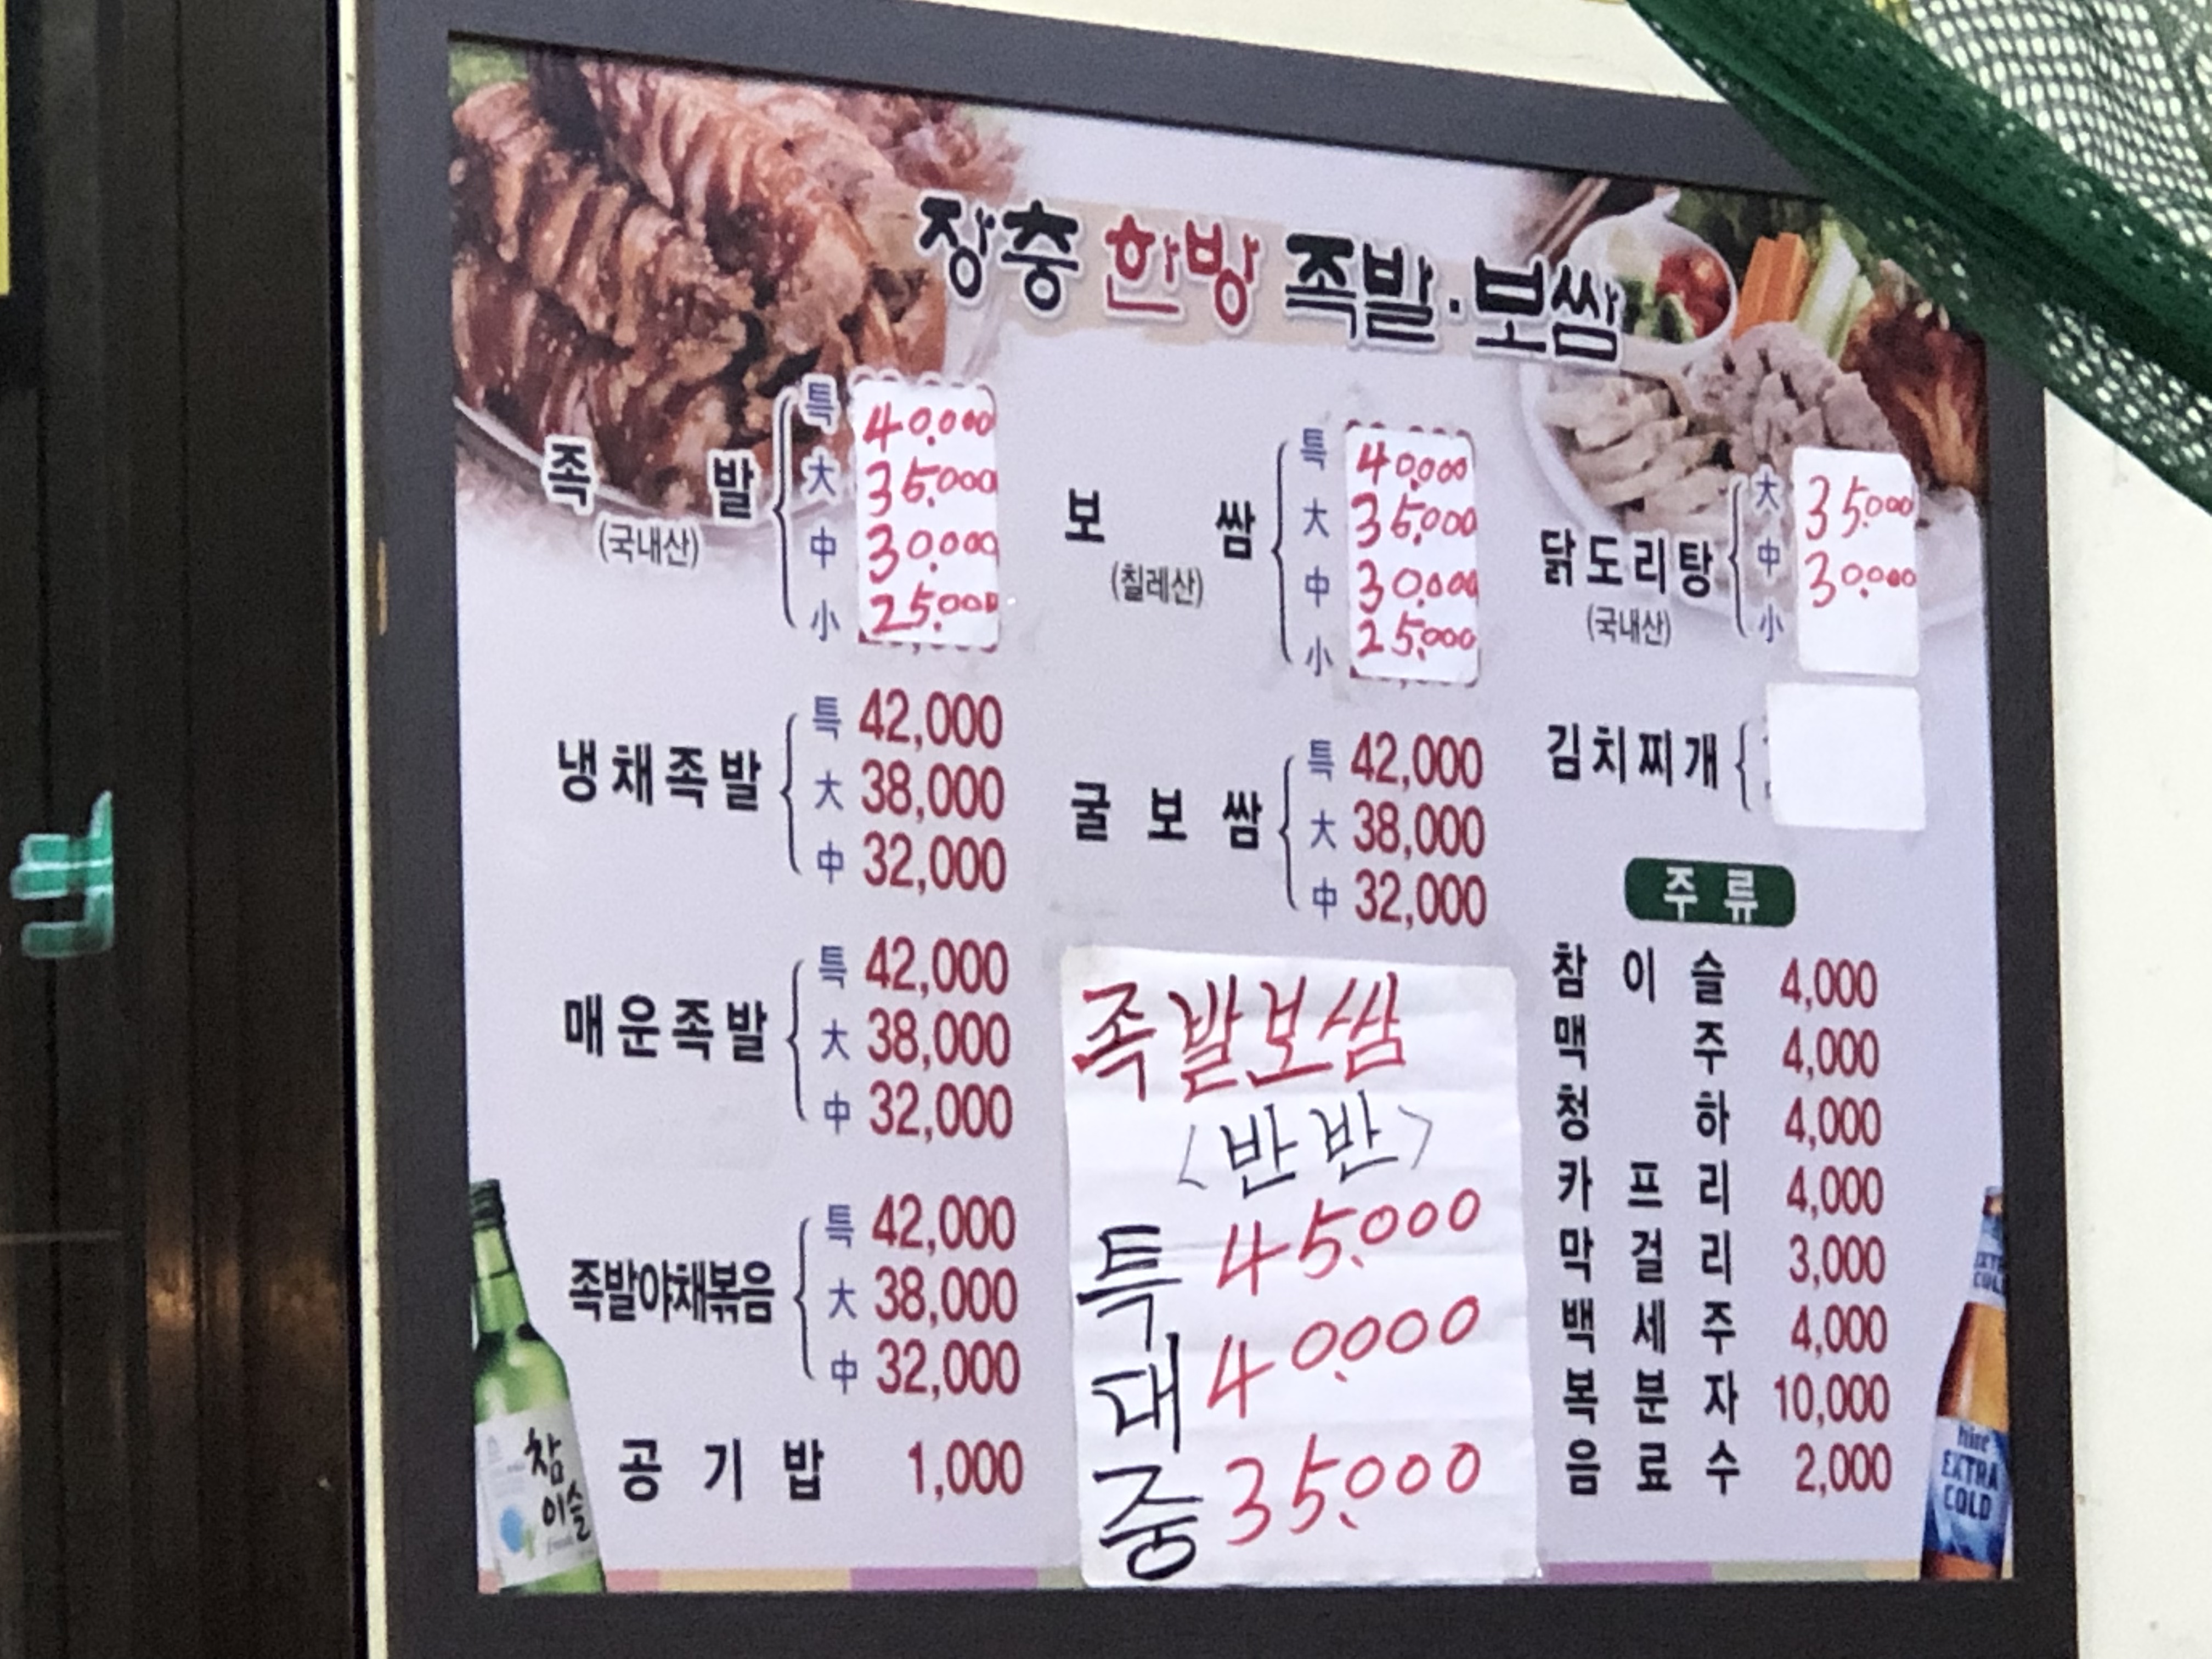 장충 한방 족발·보쌈
족발 특 40,000
大 35,000
(국내산) 中 30,000
小 25,000
냉채족발 특 42,000
大 38,000
中 32,000
매운족발 특 42,000
大 38,000
中 32,000
족발야채볶음 특 42,000
大 38,000
中 32,000
공기밥 1,000
보쌈 특 40,000
大 35,000
(칠레산) 中 30,000
小 25,000
굴보쌈 특 42,000
大 38,000
中 32,000
족발보쌈
<반반>
특 45,000
대 40,000
중 35,000
닭도리탕 大 35,000
中 30,000
(국내산) 小
김치찌개
주류
참이슬 4,000
맥주 4,000
청하 4,000
카프리 4,000
막걸리 3,000
백세주 4,000
복분자 10,000
음료수 2,000
참
이슬
fresh
EXTRA
COLD
hite
EXTRA
COLD